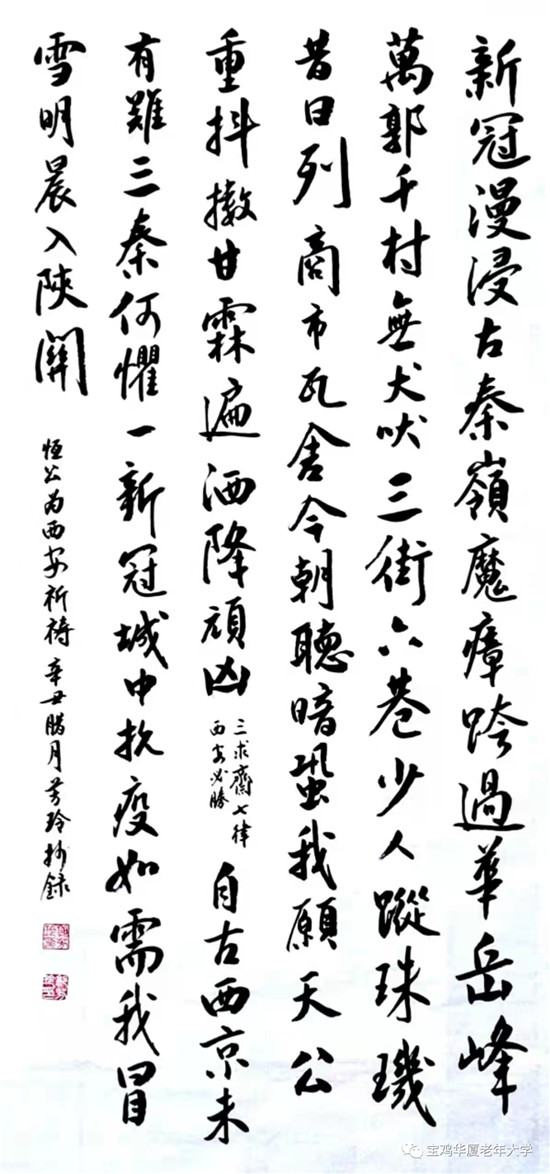 新冠漫浸古秦嶺魔瘴跨過華岳峰
萬郭千村無犬吠三街六巷少人蹤珠璣
昔日列商市瓦舍今朝聽暗蛩我願天公
重抖擻甘霖遍洒降頑凶
三求齋七律
西安必勝
自古西京未
有難三秦何懼一新冠城中抗疫如需我冒
雪明晨入陝關
恒公为西安祈祷辛丑腊月芳玲抄録
宝鸡华厦老年大学